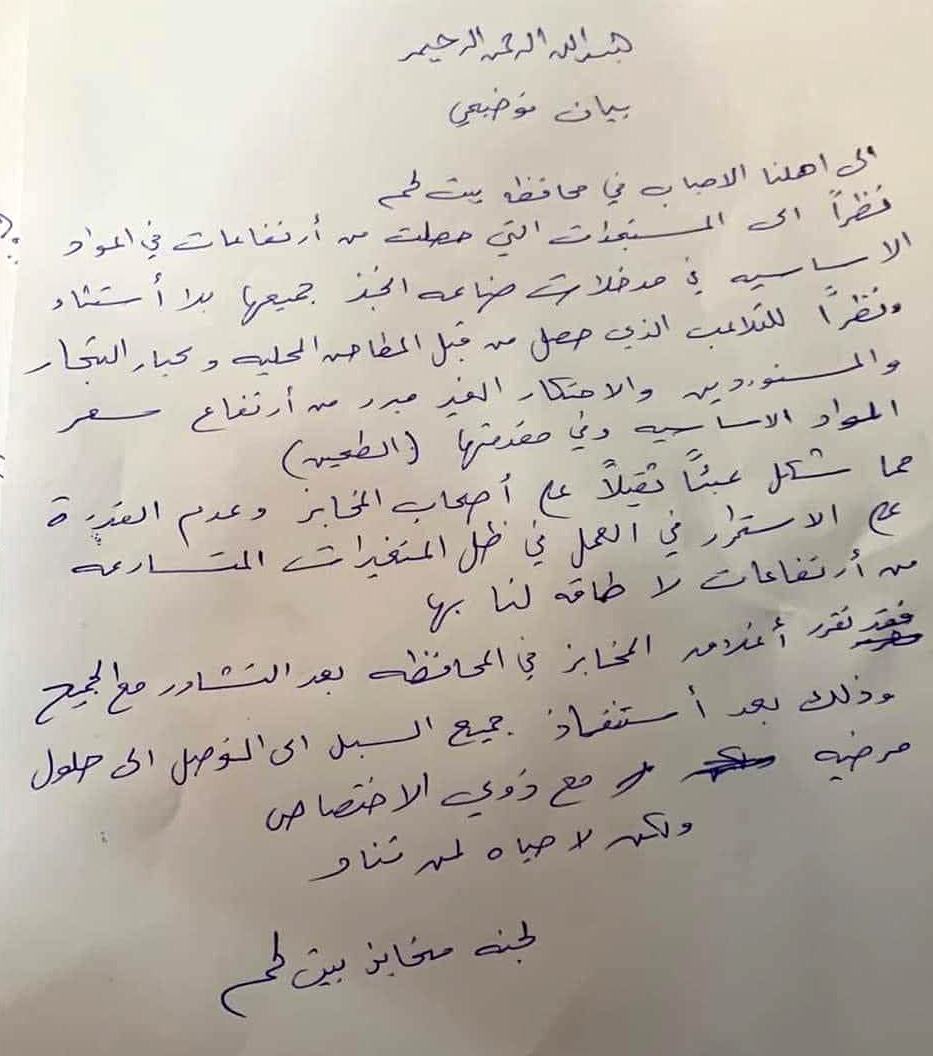 بسم الله الرحمن الرحيم
بيان توضيحي
الى اهلنا الاحباب في محافظه بيت لحم
نظراً الى المستجدات التي حصلت من أرتفاعات في المواد
الاساسيه في مدخلات صناعه الخبز جميعها بلا أستثناء
ونظراً للتلاعب الذي حصل من قبل المطاحن المحليه وكبار التجار
والمستوردين والاحتكار الغير مبرر من أرتفاع سعر
المواد الاساسيه وفي مقدمتها (الطحين)
مما شكل عبئاً ثقيلاً على أصحاب المخابز وعدم القدرة
على الاستمرار في العمل في ظل المتغيرات المتسارعه
من أرتفاعات لا طاقه لنا بها
فقد تقرر أغلاق المخابز في المحافظه بعد التشاور مع الجميع
وذلك بعد أستنفاذ جميع السبل الى التوصل الى حلول
مرضيه مع ذوي الاختصاص
ولكن لا حياه لمن تناد
لجنه مخابز بيت لحم